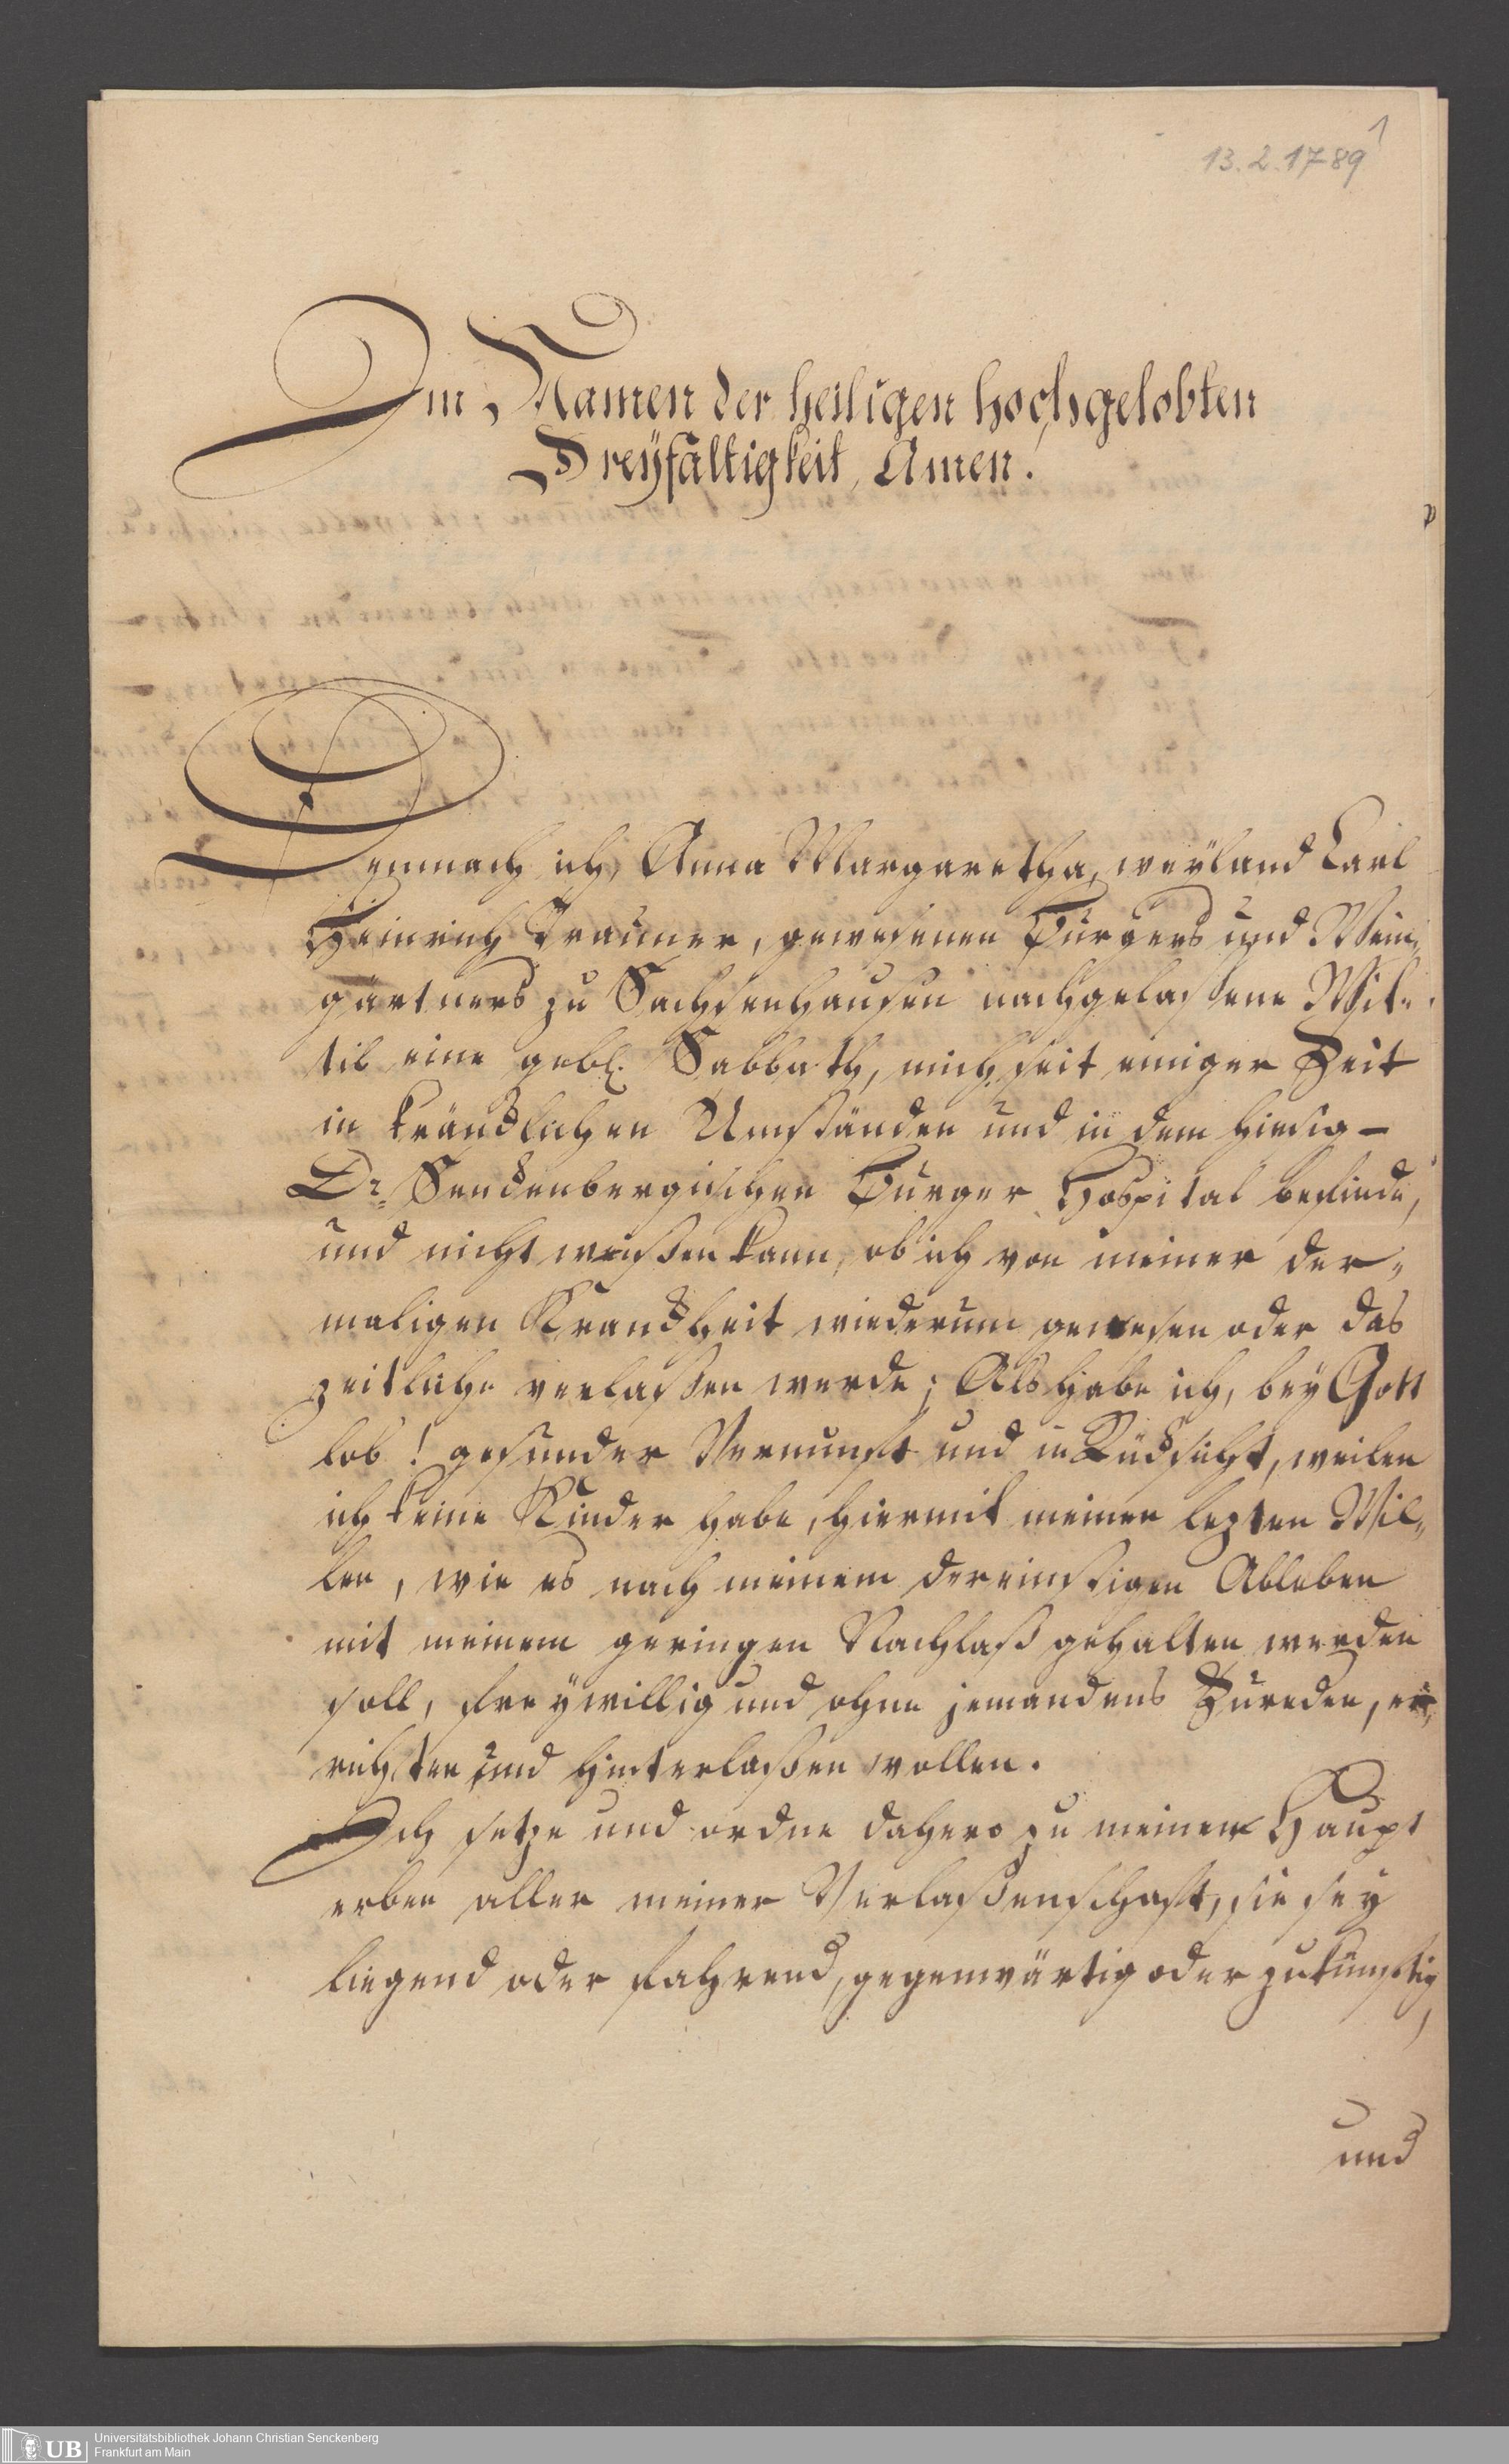 1
13.2.1789
Im Namen der heiligen hochgelobten
Dreyfaltigkeit, Amen.
Demnach ich, Anna Margaretha, weyland Carl
Heinrich Krauner, gewesenen Burgers und Wein„
gärtners zu Sachsenhausen nachgelassene Wit„
tib eine gebl. Sabbath, mich seit einiger Zeit
in kräncklichen Umständen und in dem hiesig-
Dr. Senckenbergischen Burger Hospital befinde,
und nicht weissen kann, ob ich von meiner der„
maligen Kranckheit wiederum genesen oder das
zeitliche verlassen werde; Als habe ich, bey Gott
lob! gesunder Vernunft und in Rücksicht, weilen
ich keine Kinder habe, hiermit meinen lezten Wil„
len, wie es nach meinem dereinstigen Ableben
mit meinem geringen Nachlaß gehalten werden
soll, freywillig und ohne jemandens Zureden, er„
richten und hinterlassen wollen.
Ich setze und ordne dahero zu meinem Haupt
erben aller meiner Verlassenschaft, sie sey
liegend oder fahrend, gegenwärtig oder zukünftig,
und
UB
Universitätsbibliothek Johann Christian Senckenberg
Frankfurt am Main